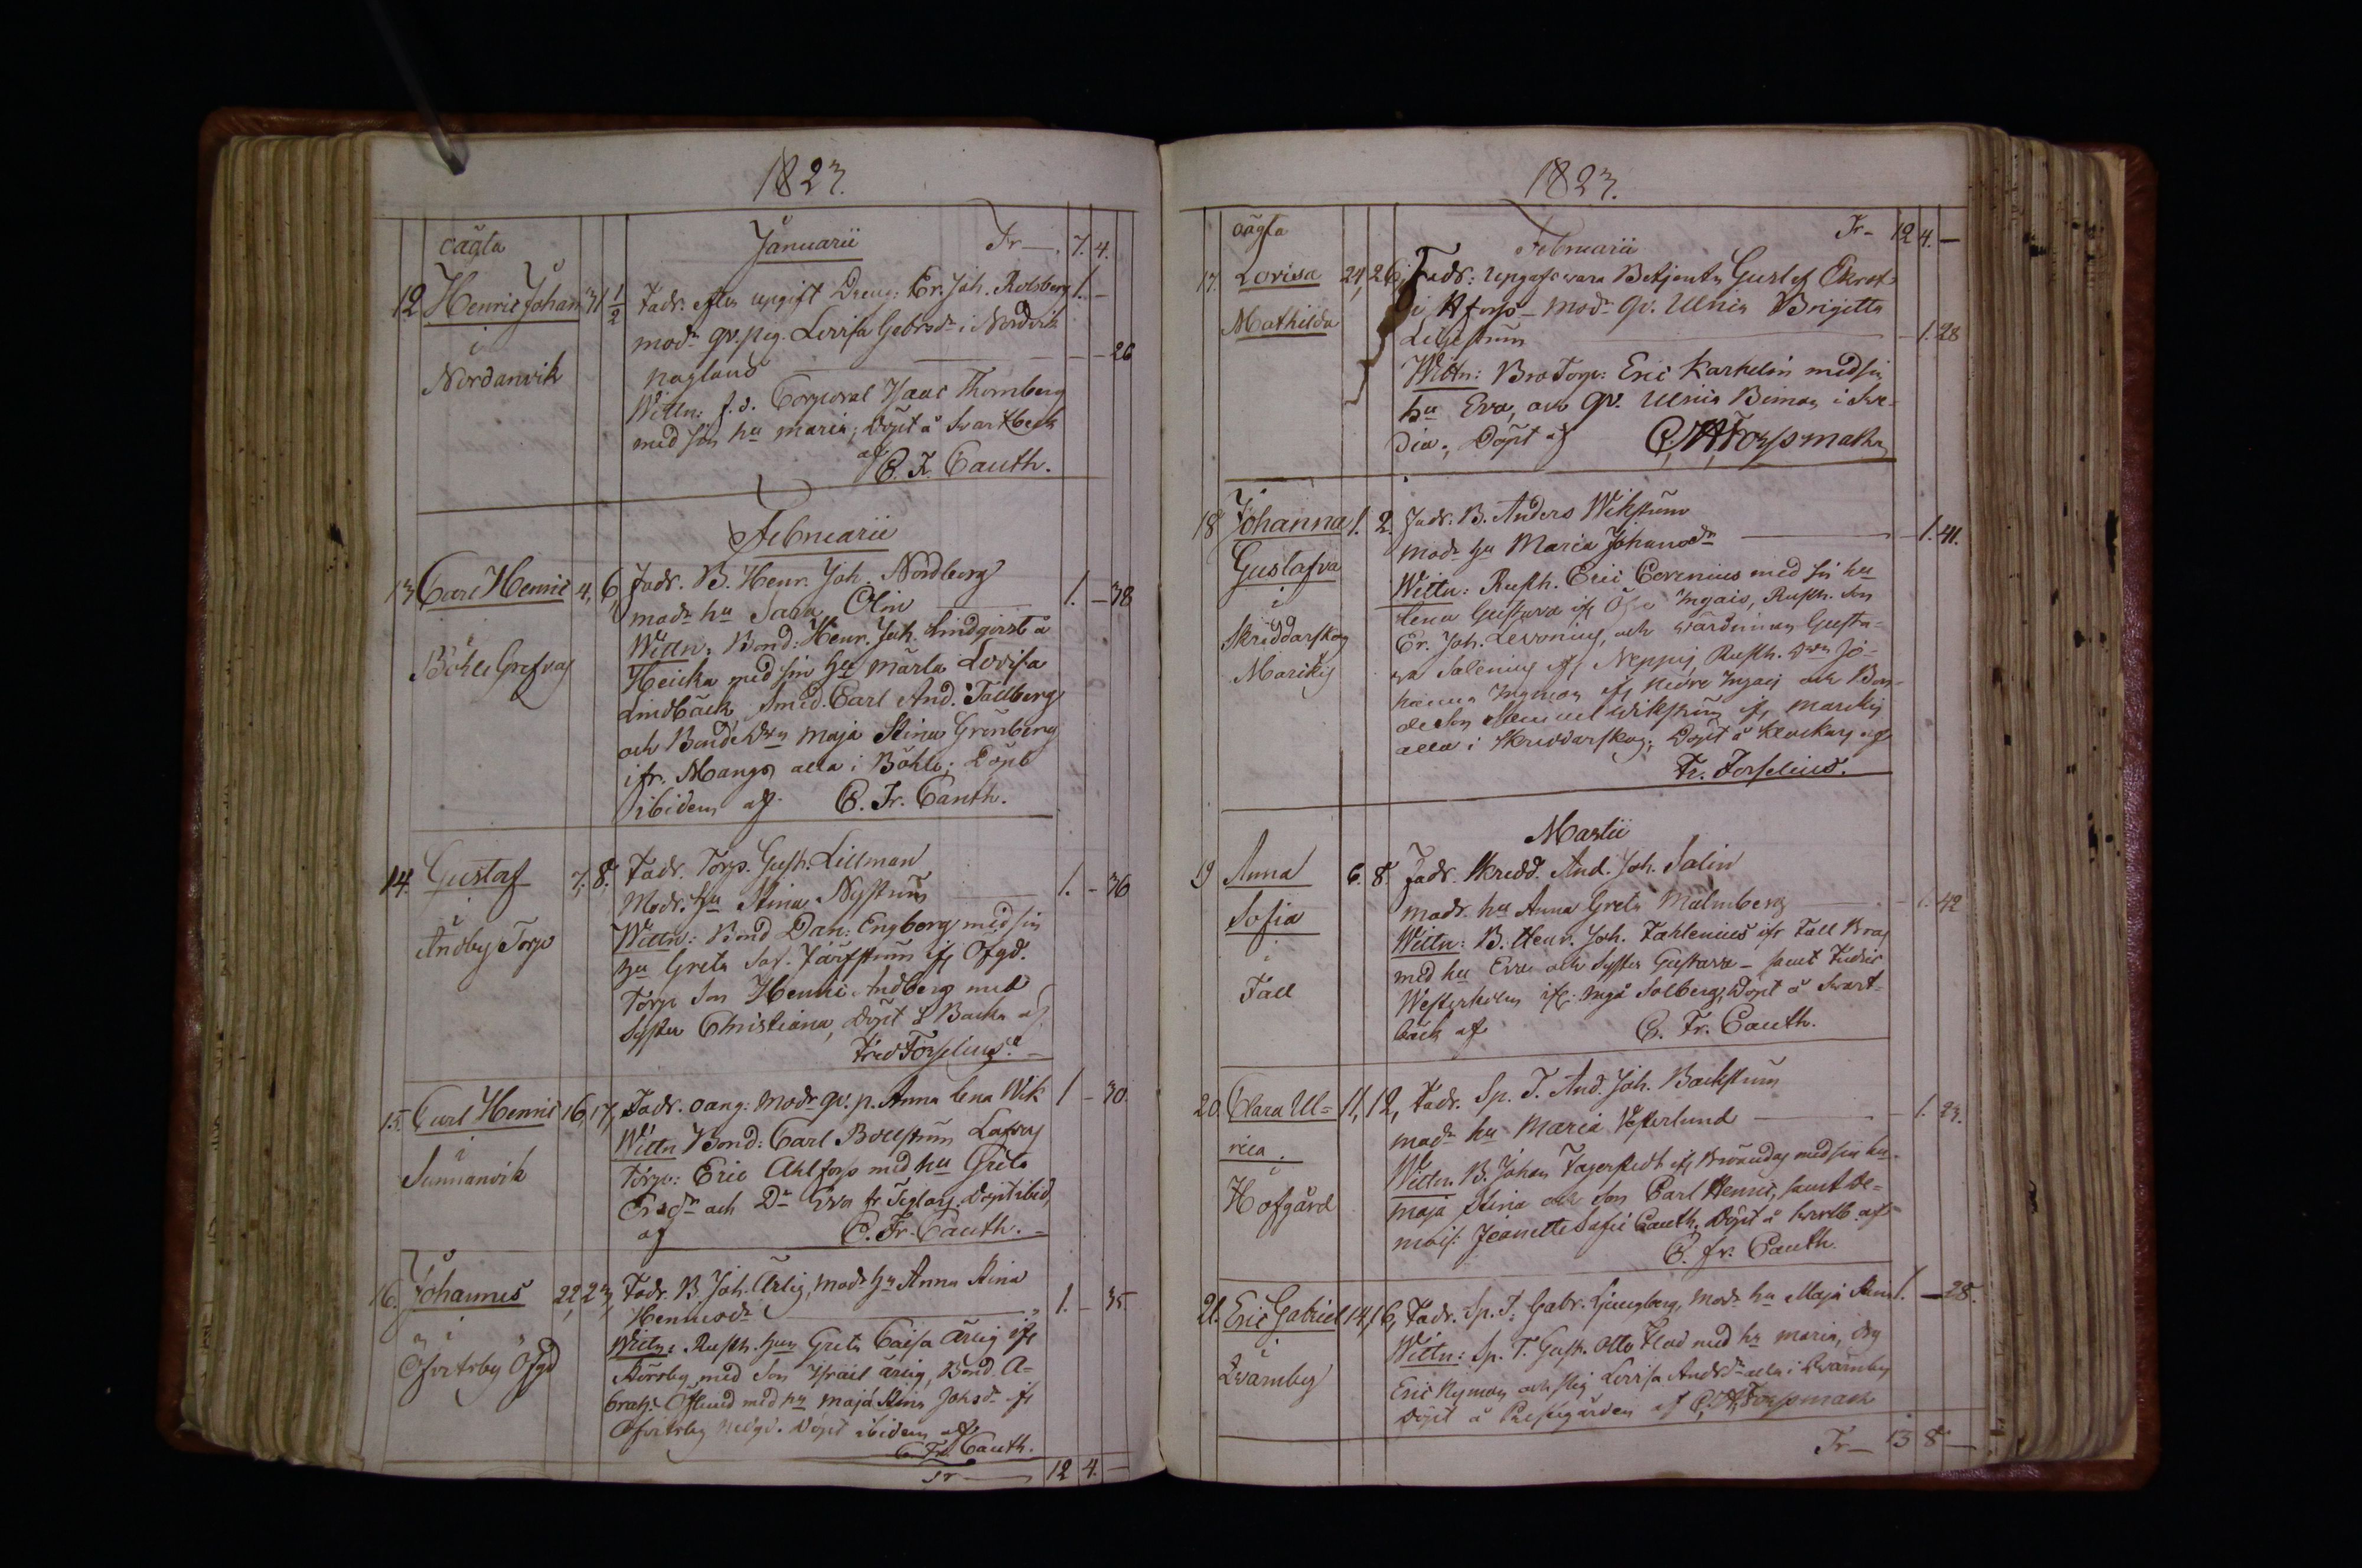 1823.
oägta Januarii Fr — 7. 4.
12 Henric Johan 31 1/2 Fadr. efter upgift Dreng: Er. Joh. Rolsberg 1. —
i modr qv. pig. Lovisa Gabrsdr i Nordvik
Nordanvik Nagland — — 26
Wittn: f.d. Corporal Isaac Thornberg
med sin hu Maria; döpt å Svartbeck
af C. Fr. Cauth.
Februarii
13 Carl Henric 4, 6, Fadr. B. Henr. Joh. Nordberg
modr hu Sara Olin 1. — 38
Böhle Grefvas Wittn: Bond: Henr. Joh. Lindqvist å
Heicka med sin hu Märta Lovisa
Lindbäck, Smed. Carl And. Tallberg
och Bonde Dtrn Maja Stina Grönberg
ifr. Mangs alla i Böhle; Döpt
ibidem af C. Fr. Cauth.
14. Gustaf 7, 8. Fadr. Torp. Gust. Lillman
i Modr. hu Stina Nyström 1. — 36
Andby Torp Wittn: Bond Dan: Engberg med sin
hu Greta Sof. Järfström ifr Ofgd.
Torp Son Henric Andberg med
Syster Christiana, Döpt å Backa af
Fred Forselius.
15. Carl Henric 16, 17, Fadr. oang: Modr qv. p. Anna Lena Wik 1 — 30.
i Wittn Bond: Carl Boström Lafvas
Sunnanvik Torp: Eric Ahlfors med hu Greta
Ersdr och Dr Eva fr Teglars. Döpt ibid.
af C. Fr. Cauth.
16. Johannes 22, 23, Fadr. B. Joh. Ärlig, modr hu Anna Stina
i Henricsdr 1. — 35.
Ofvitsby Öfgd Wittn: Rusth. hun Greta Caisa Ärlig ifr
Störsby med Son Israel Ärlig, Bond. A-
brah: Öflund med hu Maja Stina Johsdr ifr
Ofvitsby Nedgd. Döpt ibidem af
C. Fr. Cauth.
Fr — 12 4. —
1823.
oägta Februarii Fr — 12 4. —
17. Lovisa 24, 26, Fadr: Upgafs vara Betjenten Gustaf Ekrot
Mathilda i Afors — Modr qv. Ulrica Brigitta
Liljeström — 1. 28
Wittn: Bro Torp: Eric Karhelin med sin
hu Eva, och qv. Ulrica Biman i Sve-
dia; Döpt af C. A. Forssman
18 Johanna 1. 2. Fadr. B. Anders Wikström
Gustafva modr hu Maria Johansdr — 1. 41.
i Wittn: Rusth. Eric Cerenius med sin hu
Skriddarskog Lena Gustava ifr Öfre Ingais, Rusth. Son
Marikis Er. Joh. Levonius, och värdinnan Gusta-
va Salenius ifr Neppis Rusth. Dtrn Jo-
hanna Ingman ifr Nedre Ingais och Bon-
de Son Samuel Wikström ifr Marikis
alla i Skriddarskog; Döpt å Klockars af
Fr. Forselius.
Martii
19 Anna 6. 8. Fadr. Skredd. And. Joh. Salin
Sofia modr. hu Anna Greta Malmberg — 1. 42
i Wittn: B. Henr. Joh. Fahlenius ifr Fall Bras
Fall med hu Eva och Syster Gustava — samt Fredric
Westerholm ifr: Ingå Solberg, Döpt å Svart-
bäck af C. Fr. Cauth.
20. Clara Ul- 11, 12, Fadr. Sp. T. And. Joh. Backström
rica. modr hu Maria Westerlund — 1. 23.
i Wittn. B. Johan Fagerstedt ifr Brändas med sin hu
Hofgård Maja Stina och Son Carl Henric, samt De-
mois: Jeanette Sofie Cauth. Döpt å Svartb. af
C. Fr. Cauth.
21. Eric Gabriel 14, 16, Fadr. Sp. T. Gabr. Ljungberg, Modr hu Maja Stina 1. — 28.
i Wittn: Sp. T. Gust. Otto Flod med hu Maria, drg
Qvarnby Eric Nyman och pig Lovisa Andsdr alla i Qvarnby
Döpt å Prestgården af C. A. Forssman
Fr — 13 8 —